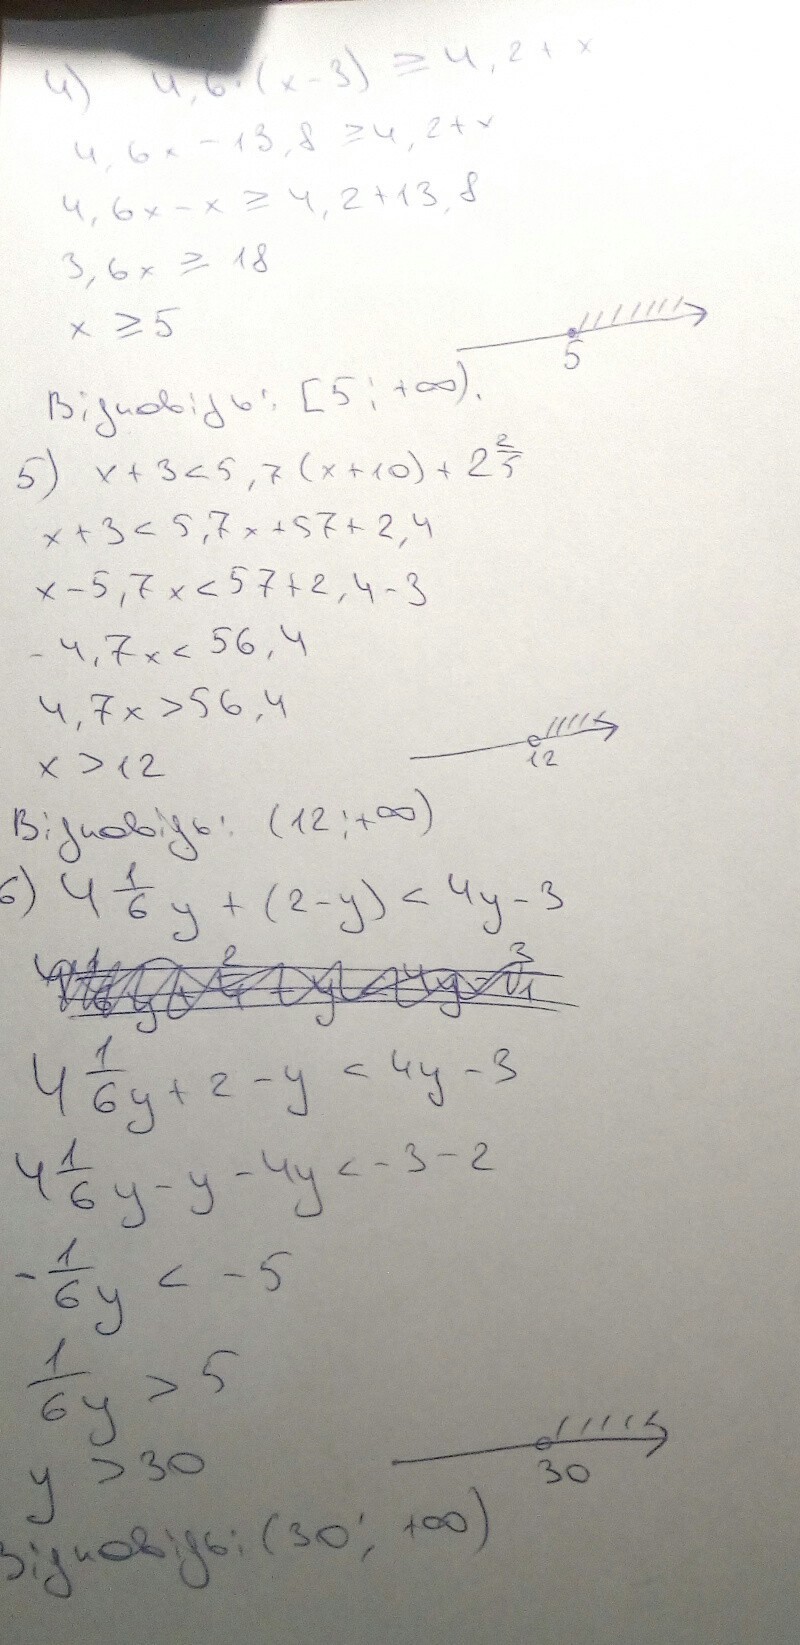 4) 4,6·(x-3) ≥ 4,2+x
4,6x-13,8 ≥ 4,2+x
4,6x-x ≥ 4,2+13,8
3,6x ≥ 18
x ≥ 5
5
Відповідь: [5; +∞).
5) x+3<5,7(x+10)+2 2/5
x+3<5,7x+57+2,4
x-5,7x<57+2,4-3
-4,7x<56,4
4,7x>56,4
x>12
12
Відповідь: (12;+∞)
6) 4 1/6 y + (2-y) < 4y-3
4 1/6 y + 2 - y < 4y - 3
4 1/6 y - y - 4y < -3-2
- 1/6 y < -5
1/6 y > 5
y > 30
30
Відповідь: (30; +∞)